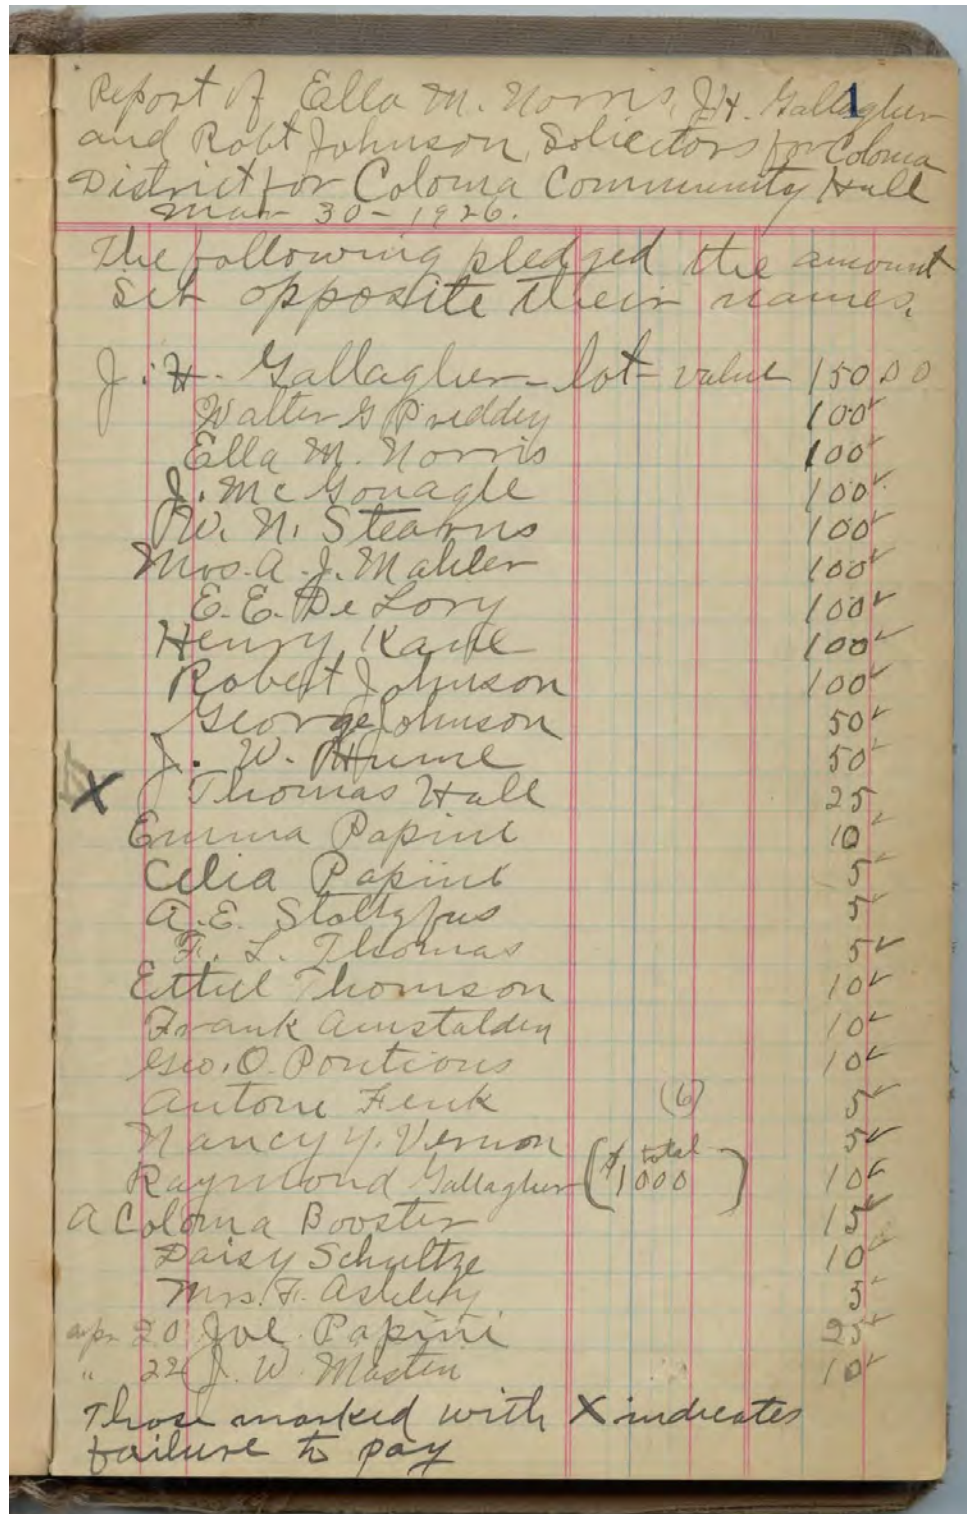 1
Report of Ella M. Norris, J.H. Gallagher
and Robt Johnson, Solicitors for Coloma
District for Coloma Community Hall
Mar 30 - 1926.
The following pledged the amount
set opposite their names.
J. H. Gallagher - lot - value 150 00
Walter G Priddey 100
Ella M. Norris 100
J. McGonagle 100
W. N. Stearns 100
Mrs. A. J. Mahler 100
E. E. De Lory 100
Henry Kane 100
Robert Johnson 100
George Johnson 50
J. W. Hume 50
X Thomas Hall 25
Emma Papini 10
Celia Papini 5
A. E. Stoltzfus 5
F. L. Thomas 5
Ethel Thomson 10
Frank Amstalden 10
Geo. O. Pontious 10
Antone Fenk (6) 5
Nancy Y. Vernon 5
Raymond Gallagher ($ total 1000) 10
A Coloma Booster 15
Daisy Schultze 10
Mrs. F. Ashley 5
Apr 20 Joe Papini 25
" 22 J. W. Mastin 10
Those marked with X indicates
failure to pay